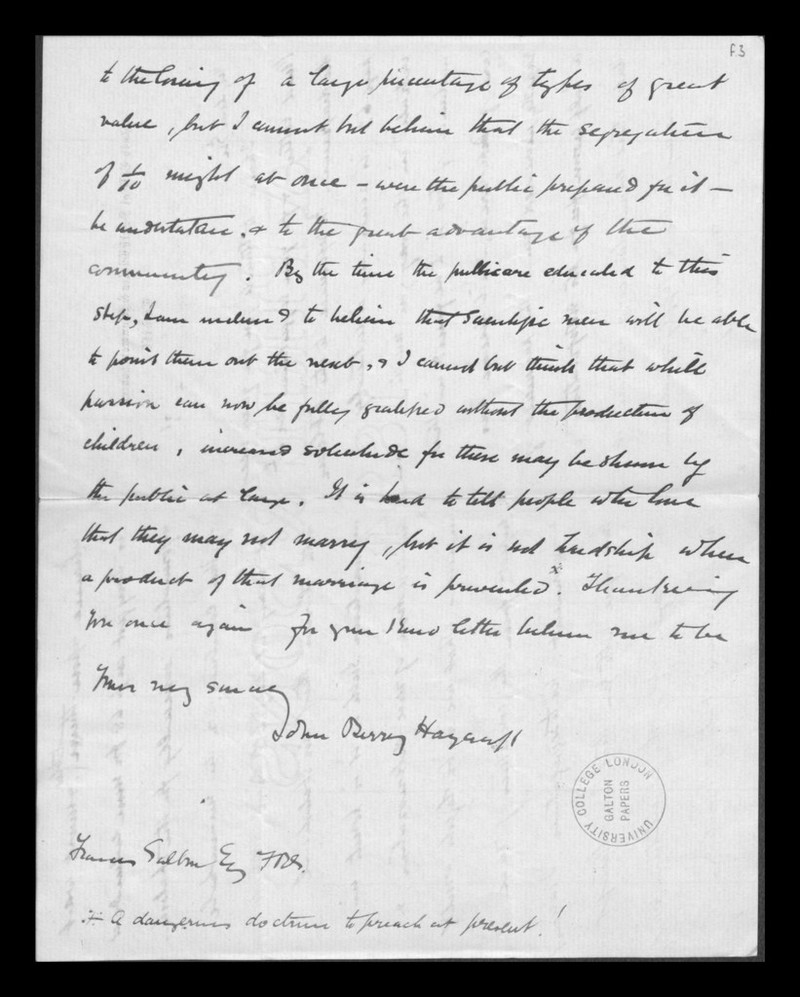 f3
to the losing of a large percentage of types of great
value, but I cannot but believe that the segregation
of 1/10 might at once – were the public prepared for it –
be undertaken, & to the great advantage of the
community. By the time the public are educated to this
step, I am inclined to believe that Scientific men will be able
to point them out the next, & I cannot but think that while
passion can now be fully gratified without the production of
children, increased solicitude for these may be shown by
the public at large. It is hard to tell people who love
that they may not marry, but it is not hardship when
a product of that marriage is prevented x. Thanking
you once again for your kind letter believe me to be
Yours very sincerely
John Berry Haycraft
UNIVERSITY COLLEGE LONDON
GALTON
PAPERS
Francis Galton Esq FRS.
x A dangerous doctrine to preach at present!